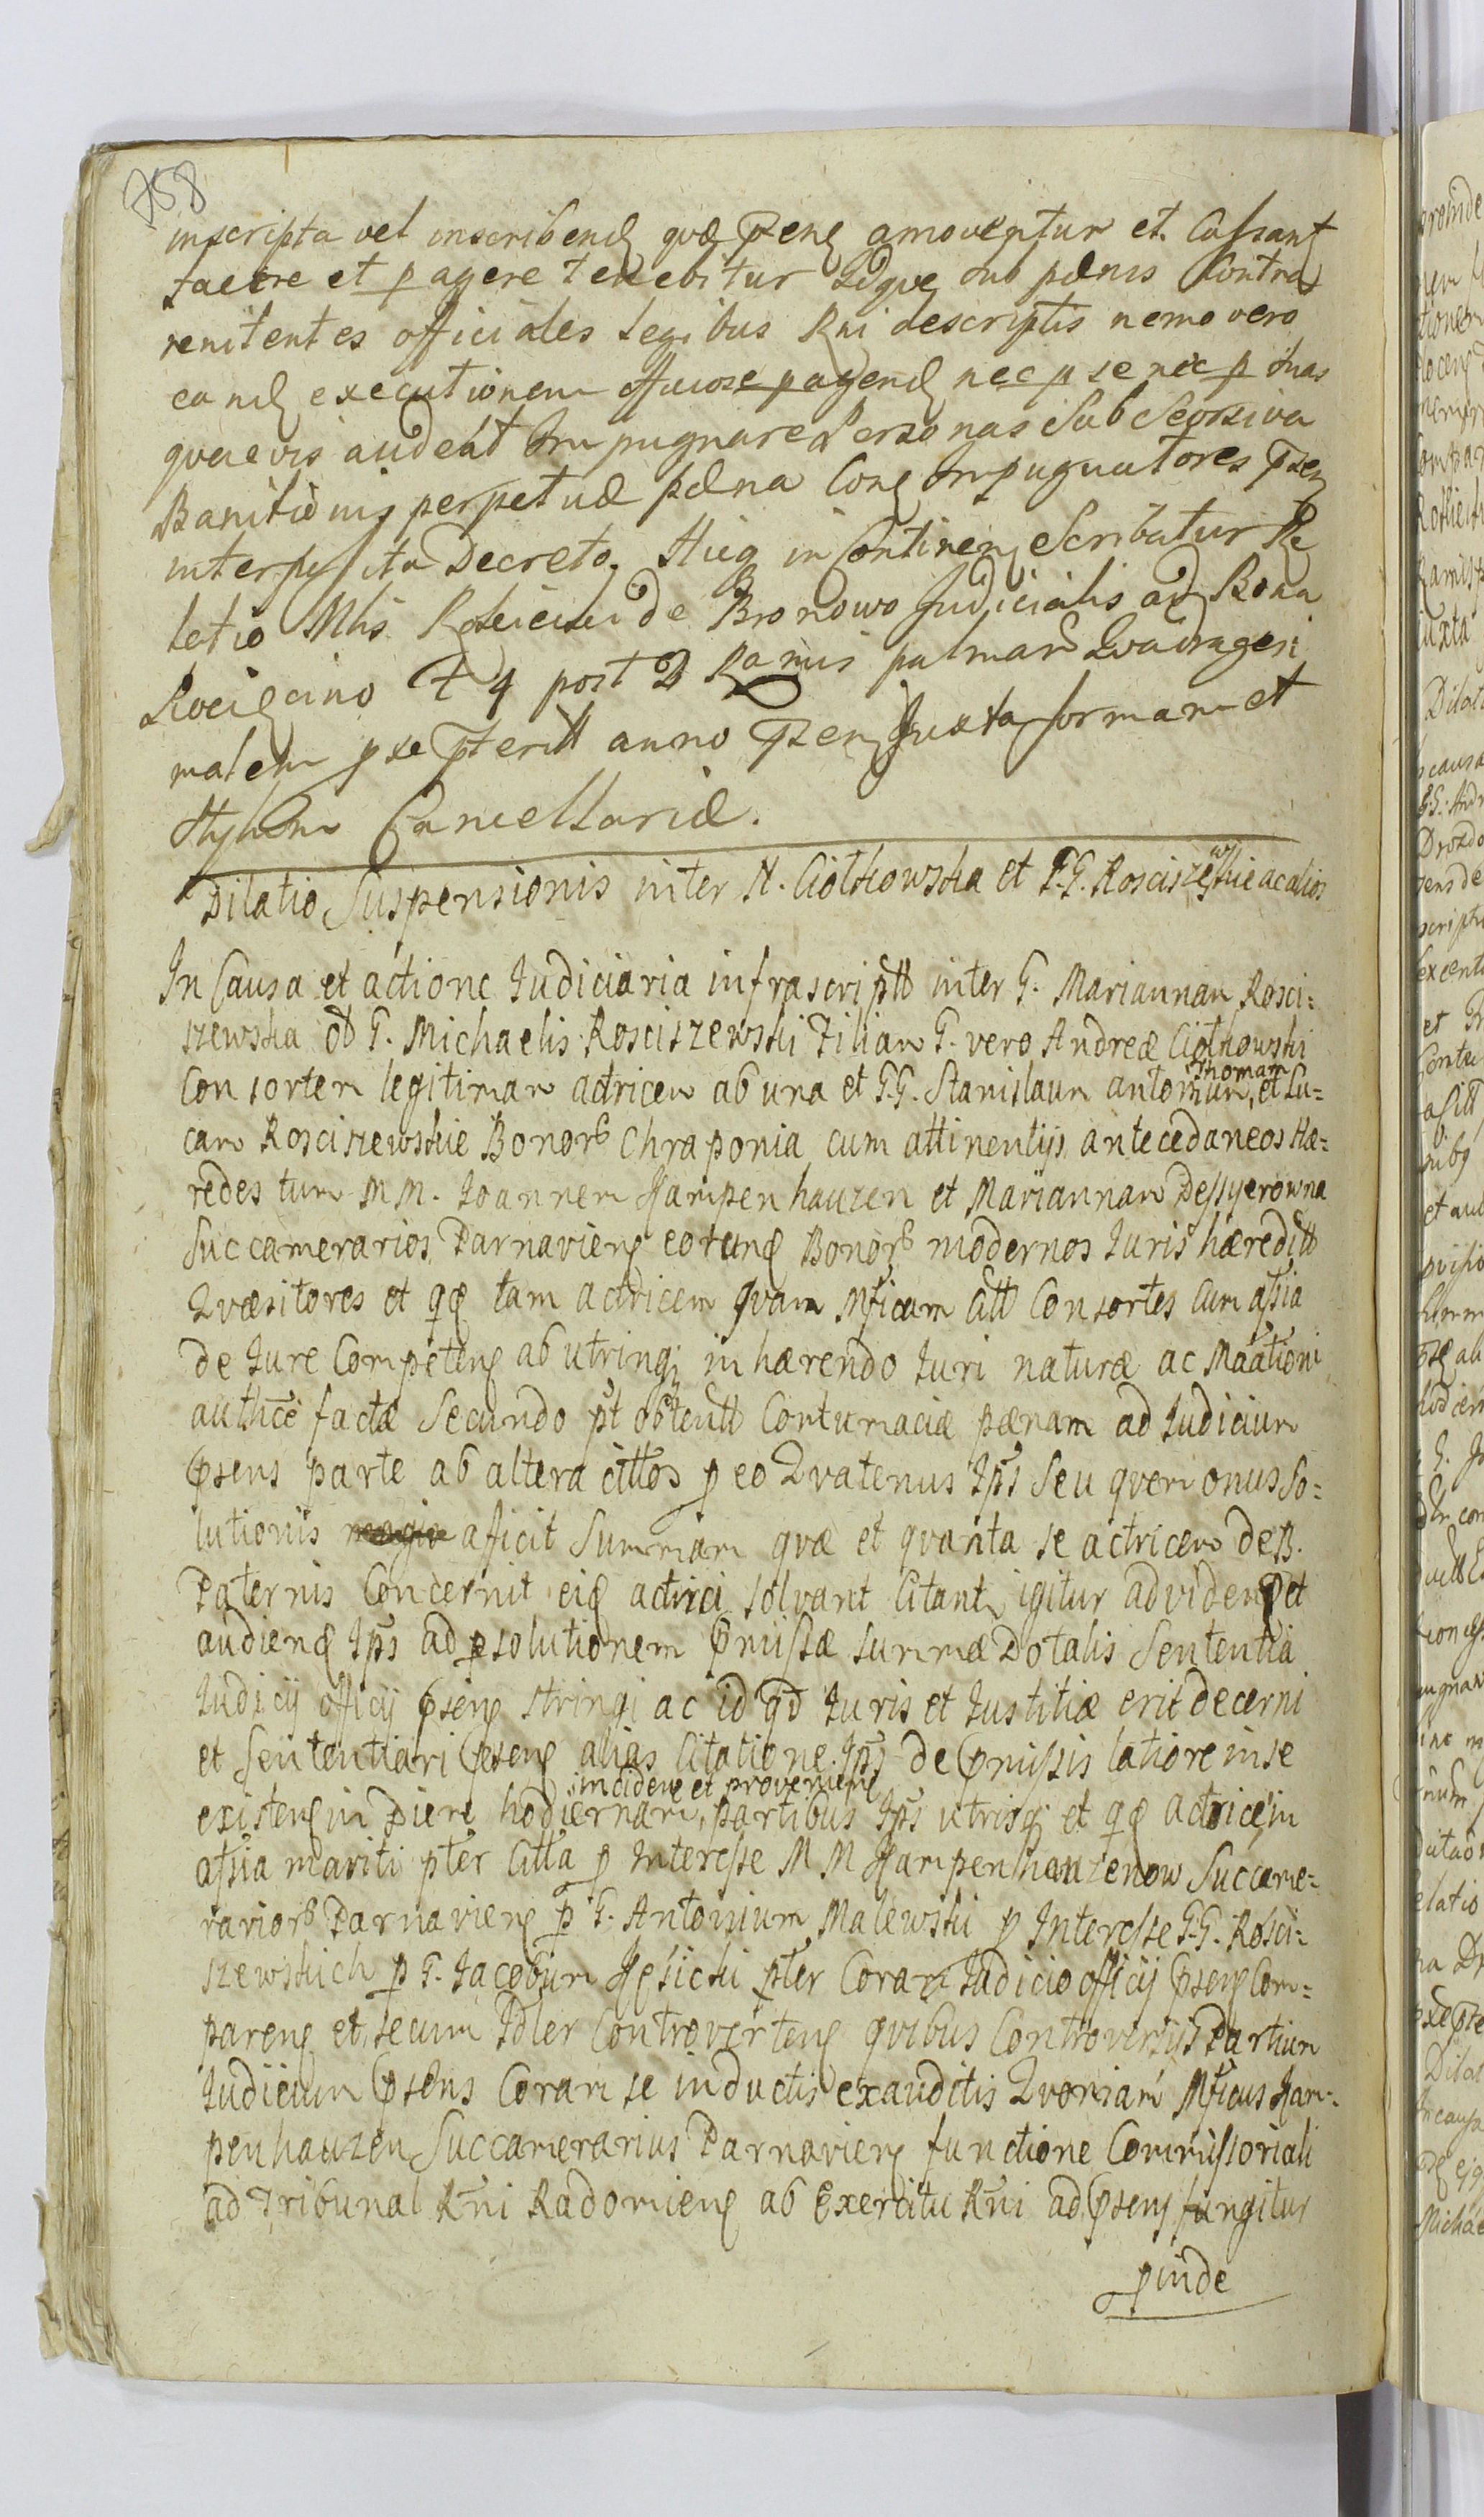 758
inscripta vel inscribend quæ Psens amoventur et Cassant
facere et pagere tenebitur idque sub pœnis Contra
renitentes officiales legibus Rni descriptis nemo vero
eand executionem officiose pagend nec p se nec p suas
quaevis audeat Impugnare Personas sub Seorsiva
Banitionis perpetuæ pœna Con Impugnatores Psen
interposita Decreto. Huic in Continen Scribatur Re
latio Mlis de Bronowo Judicialis ad Bona
Rocigcino post Ramis palmar Quadragesi
malem anno Psen Juxta formam et
Stylum Cancellariæ.
Dilatio Suspensionis inter N. Ciołkowska et G.G. Rosciszewskie ac alios
In Causa et actione Judiciaria infrascriptt inter G. Mariannam Rosci=
szewska olt G. Michaelis Rosciszewski Filiam G. vero Andreæ Ciołkowski
Consortem legitimam actricem ab una et G.G. Stanislaum antonium, Thomam et Lu=
cam Rosciszewskie Bonorb Chraponia cum attinentijs antecedaneos Hæ=
redes tum MM. Joannem Kampenhauzen et Mariannam Dessyerowna
Succamerarios Parnaviens eorund Bonorb modernos Juris hæreditt
Quæsitores et qd tam actricem quam Mficam Citt Consortes Cum assia
de Jure Competens ab utrinq inhærendo Juri naturæ ac Maationi
authce factæ Secundo pt obtentt Contumaciæ pænam ad Judicium
Psens parte ab altera cittos p eo Quatenus Ips seu quem onus so=
lutionis aficit Summam quæ et quanta se actricem de B.
Paternis Concernit eid actrici solvant Citant igitur ad videnset
audiend Ips ad psolutionem Pmissæ summæ Dotalis Sententia
Judicij officij Psens stringi ac id qd Juris et Justitiæ erit decerni
et Sententiari Psens alias Citatione Ips de Pmissis latiore in se
existens in Diem hodiernam, incidens et proveniens partibus Ips utrisq et qd actrice in
assia mariti pter Citta p Interesse MM Kampenhauzenow Succame=
rariorb Parnaviens p G. Antonium Malewski p Interesse G.G. Rosci=
szewskich p G. Jacobum Kęsicki pter Coram Judicio officij Psens Com=
parens et secum Idler Controvertens quibus Controversijs Partium
Judicium Psens Coram se inductis exauditis Quoniam Mficus Kam=
penhauzen Succamerarius Parnaviens functione Commissoriali
ad Tribunal Rni Radomiens ab Exercitu Rni ad Psens fungitur
pinde